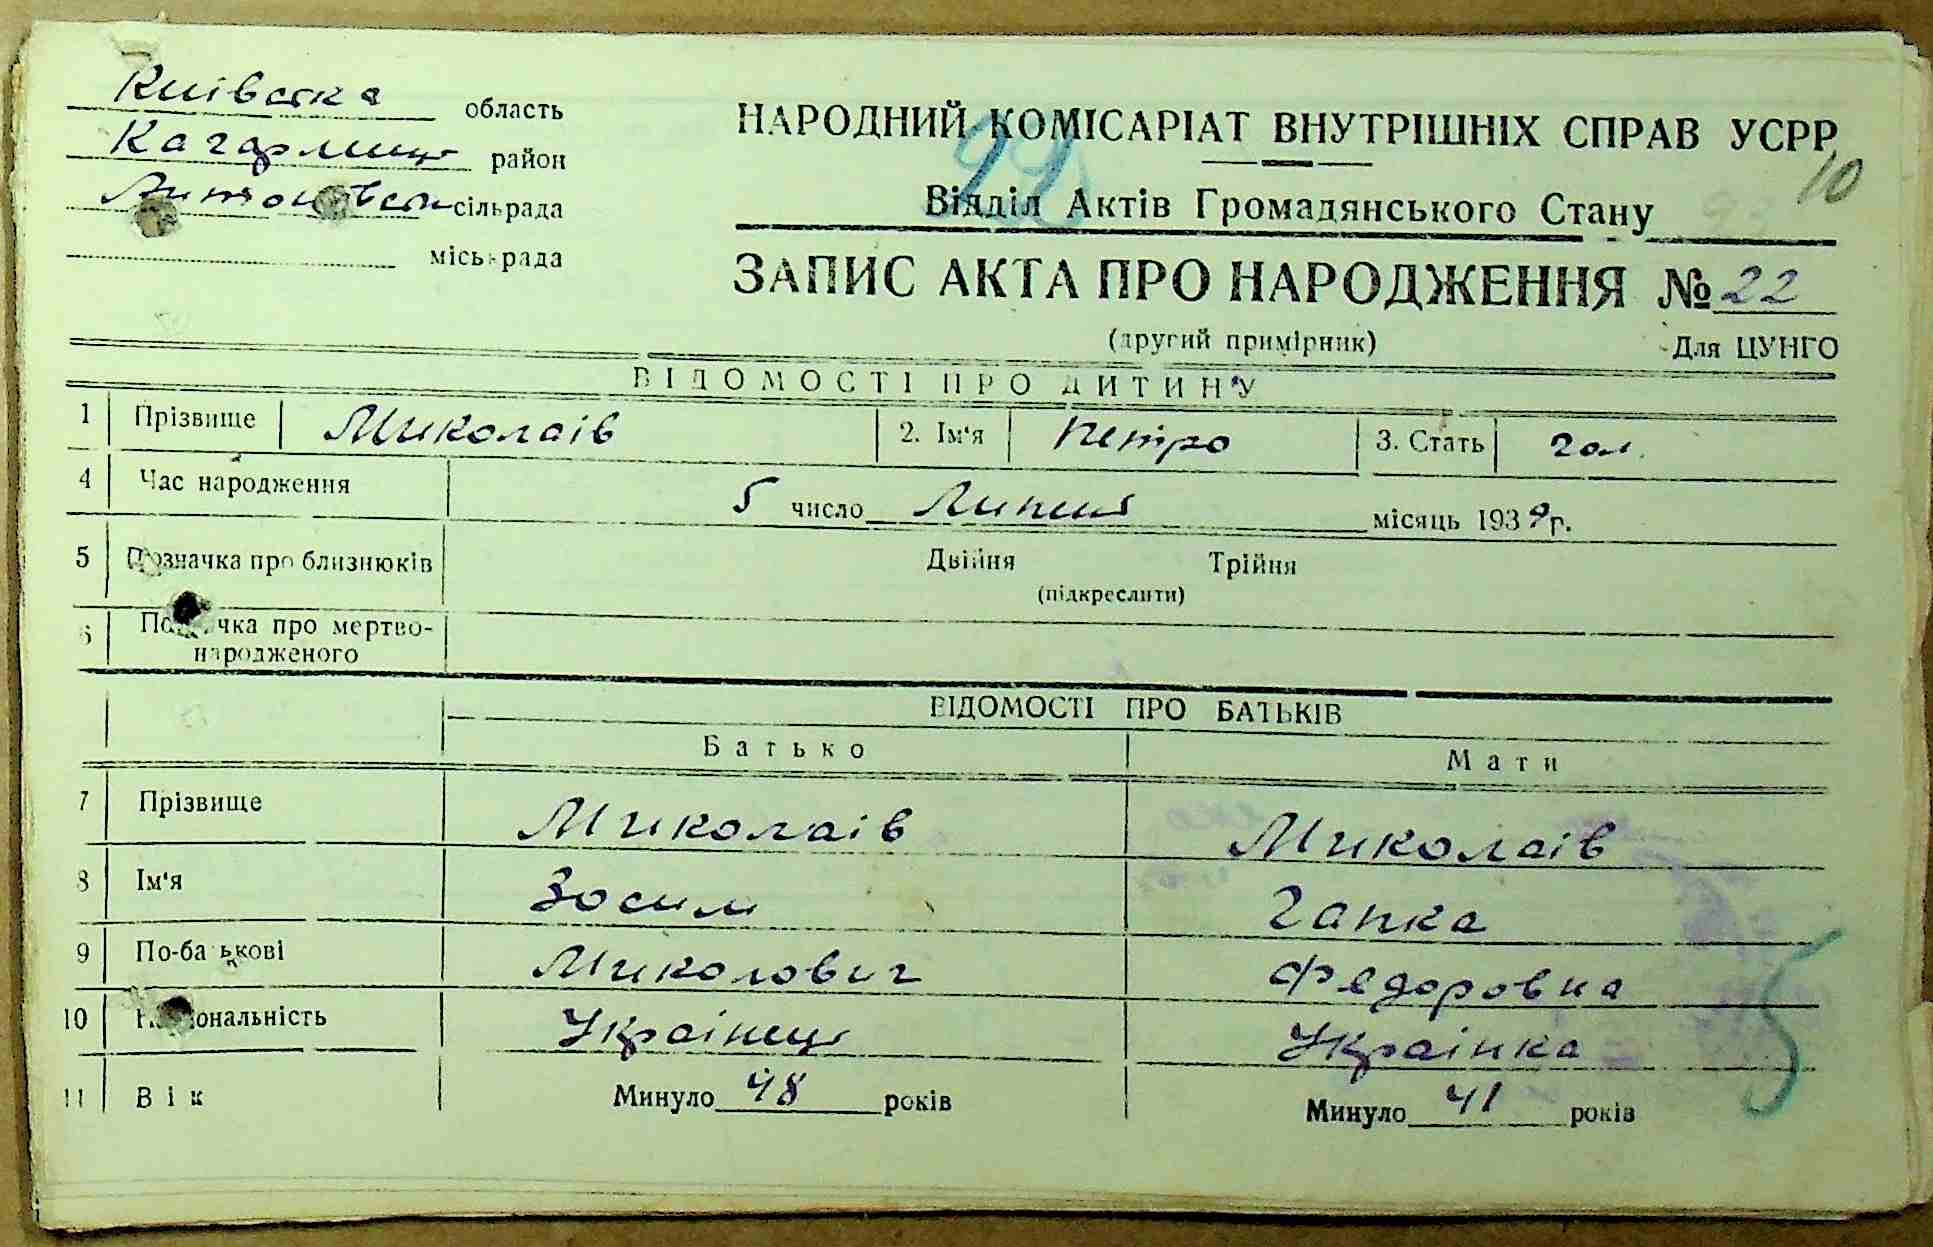 Київська область
Кагарлицьк район
Антонівськ сільрада
міськрада
НАРОДНИЙ КОМІСАРІАТ ВНУТРІШНІХ СПРАВ УСРР
10
Відділ Актів Громадянського Стану
ЗАПИС АКТА ПРО НАРОДЖЕННЯ № 22
(другий примірник) Для ЦУНГО
ВІДОМОСТІ ПРО ДИТИНУ
1 Прізвище Миколаів 2. Ім'я Петро 3. Стать чол.
4 Час народження 5 число Липня місяць 1939 р.
5 Позначка про близнюків Двійня Трійня
(підкреслити)
6 Позначка про мертво-
народженого
ВІДОМОСТІ ПРО БАТЬКІВ
Батько Мати
7 Прізвище Миколаів Миколаів
8 Ім'я Зосим Гапка
9 По-батькові Миколович Федоровна
10 Національність Українець Українка
11 Вік Минуло 48 років Минуло 41 років